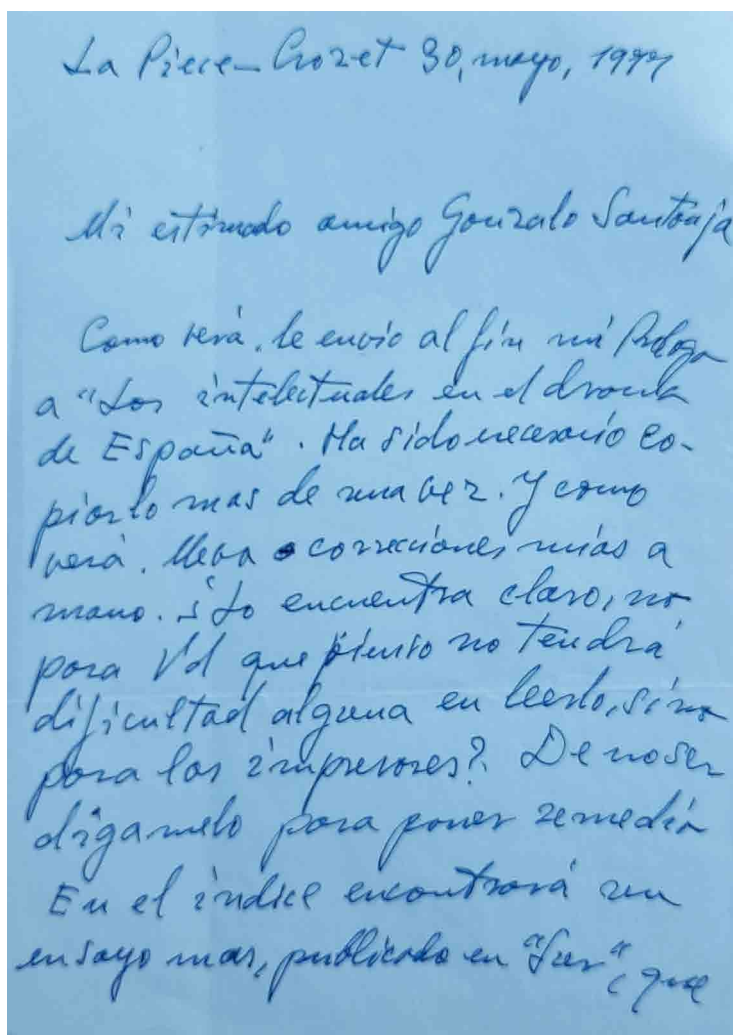 La Piece_Crozet 30, mayo, 1977
Mi estimado amigo Gonzalo Santonja
Como verá, le envio al fin mi Prólogo
a "Los intelectuales en el drama
de España". Ha sido necesario co-
piarlo mas de una vez. Y como
verá. lleva correcciones mías a
mano. ¿Lo encuentra claro, no
para Vd que pienso no tendrá
dificultad alguna en leerlo, sino
para los impresores? De no ser
dígamelo para poner remedio
En el índice encontrará un
ensayo mas, publicado en "Sur", que